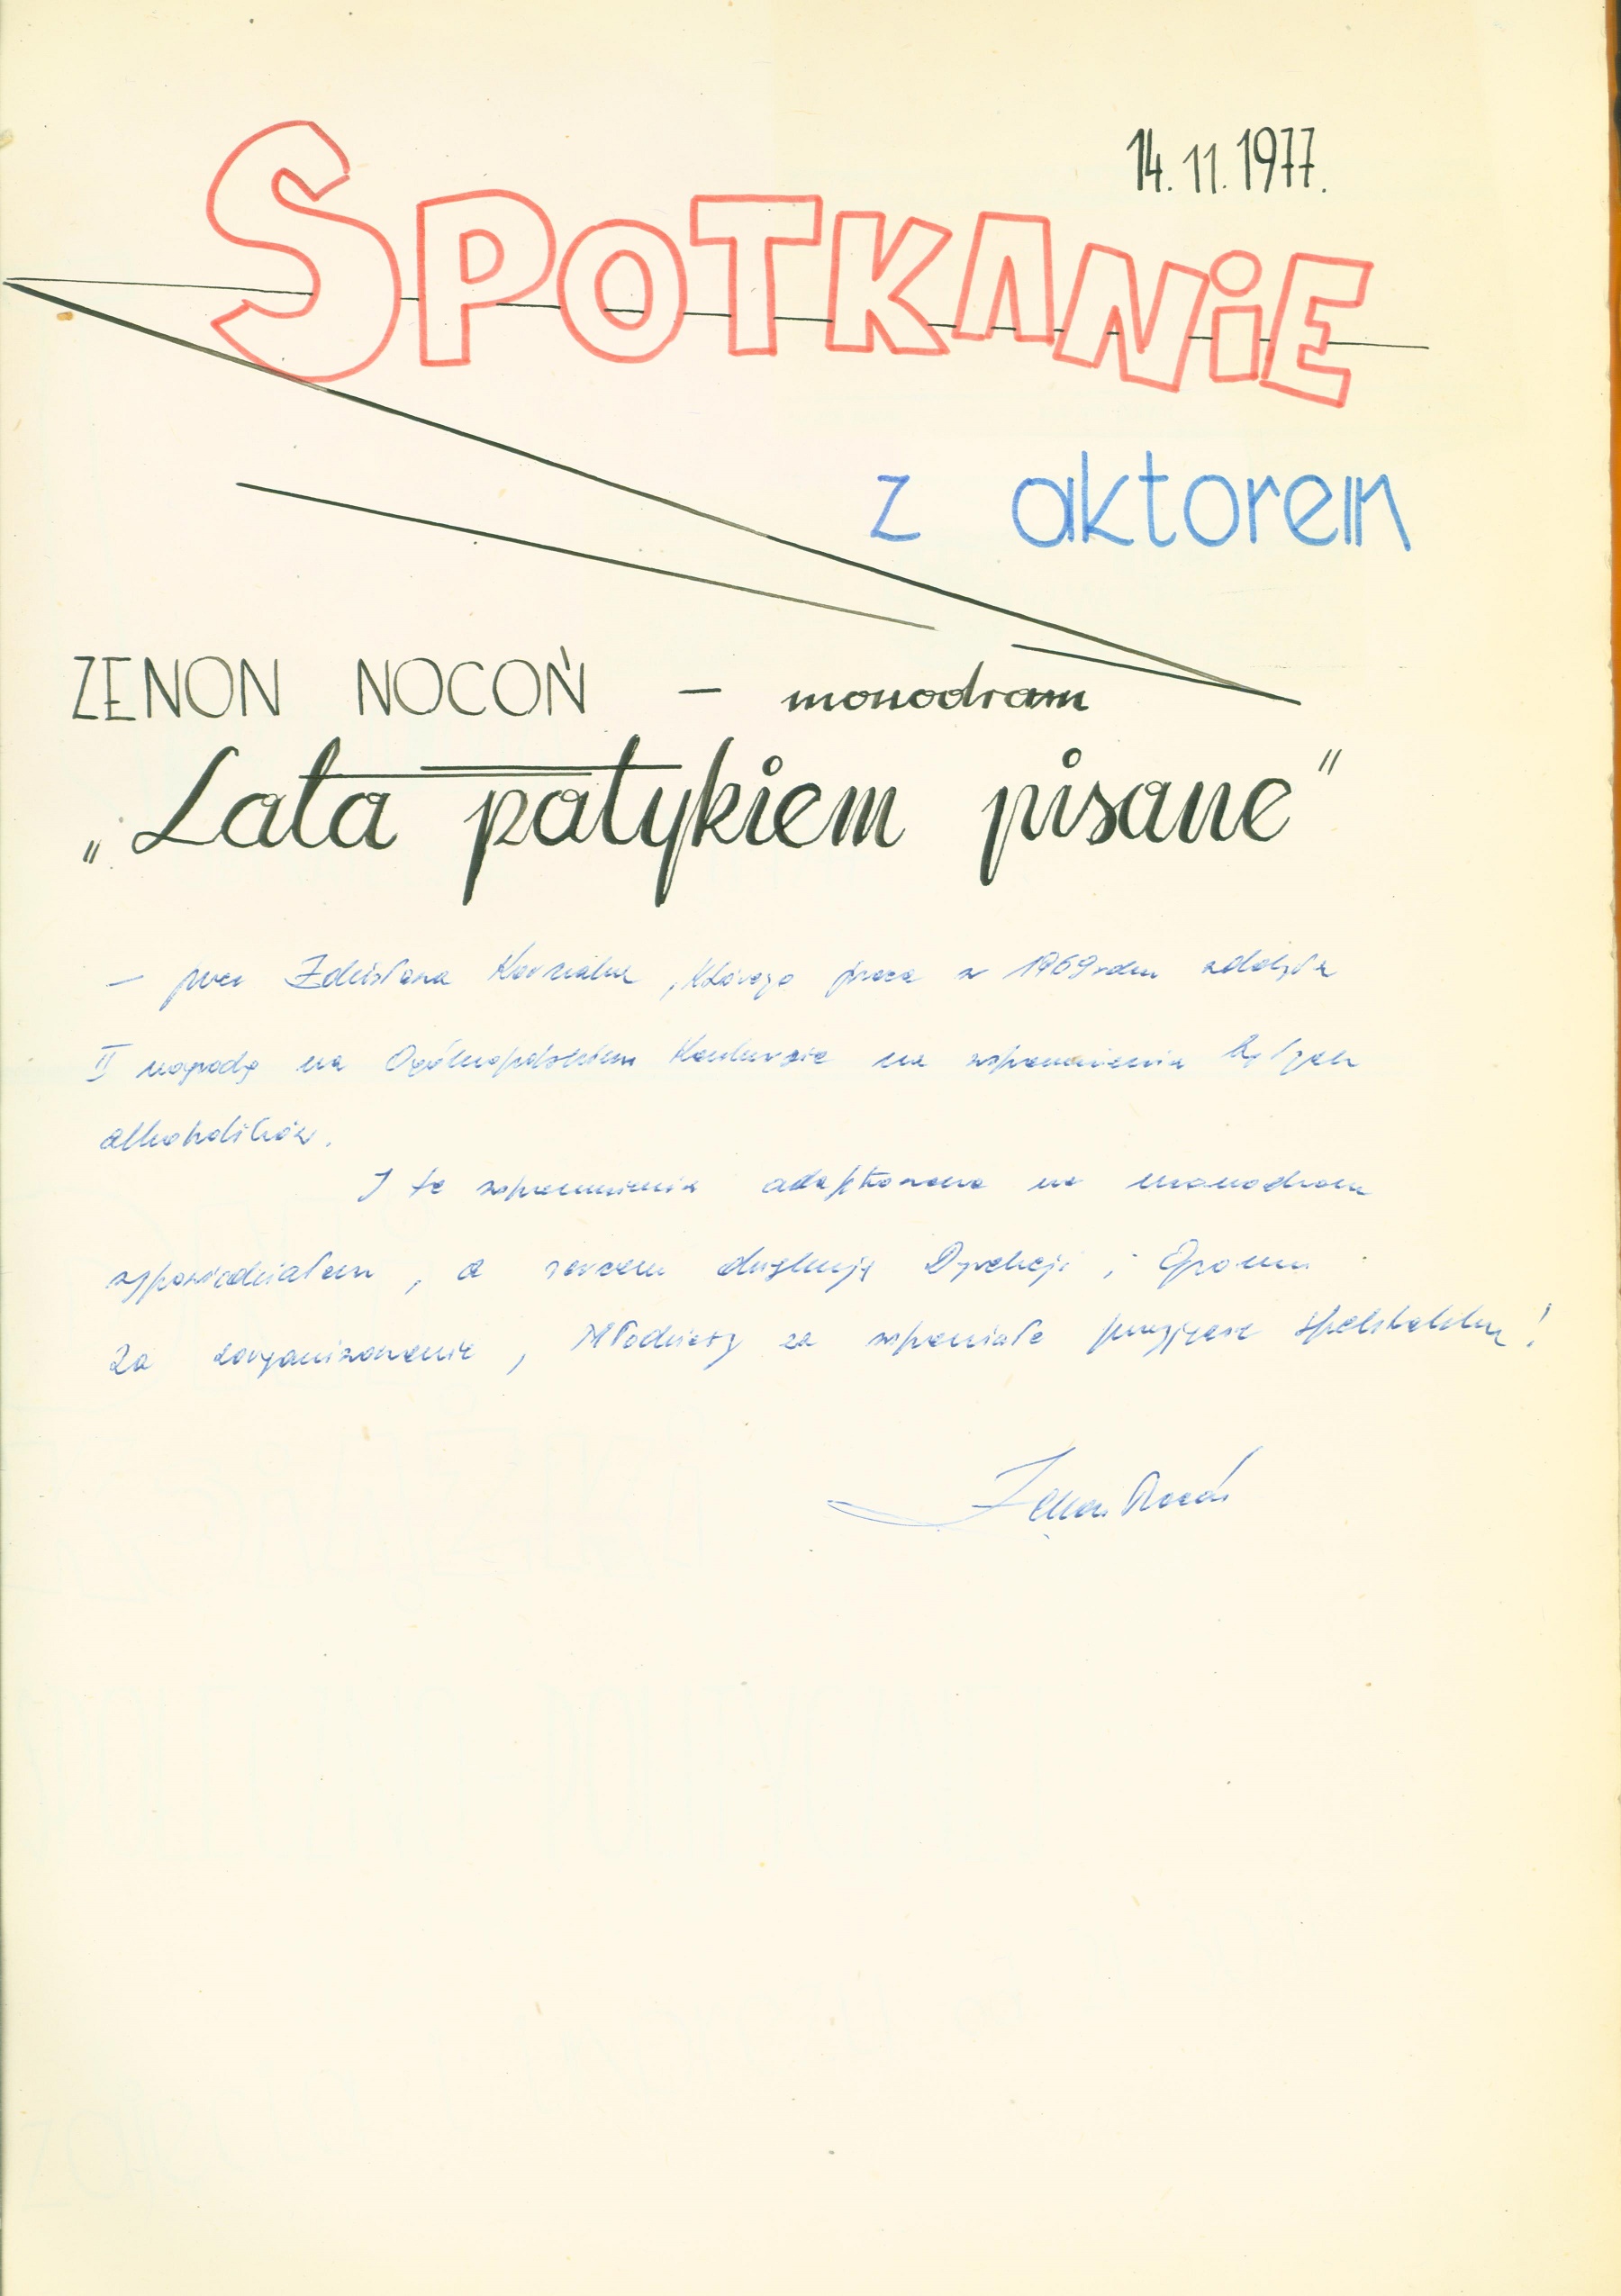 14.11.1977.
SPOTKANiE
z aktorem
ZENON NOCOŃ — monodram
„Lata patykiem pisane"
— przez Zdzisława , którego praca w 1969 roku zdobyła
II nagrodę na Ogólnopolskim Konkursie na wspomnienia byłych
alkoholików.
I te wspomnienia adaptowane na monodram
wypowiedziałem, a sercem dziękuję Dyrekcji i Gronu
za zorganizowanie, Młodzieży za wspaniałe przyjęcie spektaklu!
Zenon Nocoń